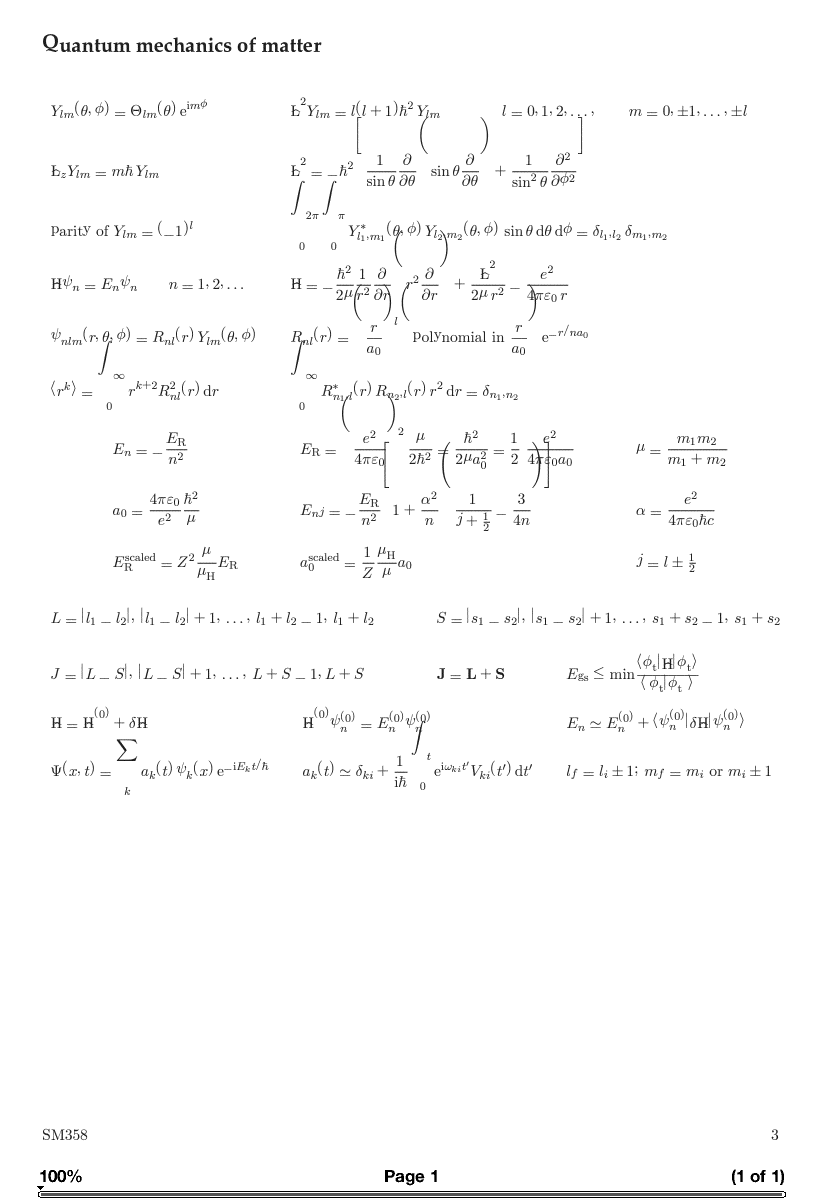 Quantum mechanics of matter
Y_{lm}(θ, ϕ) = Θ_{lm}(θ) e^{imϕ}    Ł^2 Y_{lm} = l(l + 1)ħ^2 Y_{lm}    l = 0, 1, 2, . . . ,    m = 0, ±1, . . . , ±l
Ł_z Y_{lm} = mħ Y_{lm}    Ł^2 = −ħ^2 [ \frac{1}{sin θ} \frac{∂}{∂θ} ( sin θ \frac{∂}{∂θ} ) + \frac{1}{sin^2 θ} \frac{∂^2}{∂ϕ^2} ]
parity of Y_{lm} = (−1)^l    ∫_0^{2π} ∫_0^π Y^*_{l_1,m_1}(θ, ϕ) Y_{l_2,m_2}(θ, ϕ) sin θ dθ dϕ = δ_{l_1,l_2} δ_{m_1,m_2}
Hψ_n = E_n ψ_n    n = 1, 2, . . .    H = − \frac{ħ^2}{2μ} \frac{1}{r^2} \frac{∂}{∂r} ( r^2 \frac{∂}{∂r} ) + \frac{Ł^2}{2μ r^2} − \frac{e^2}{4πε_0 r}
ψ_{nlm}(r, θ, ϕ) = R_{nl}(r) Y_{lm}(θ, ϕ)    R_{nl}(r) = ( \frac{r}{a_0} )^l ( polynomial in \frac{r}{a_0} ) e^{−r/na_0}
⟨r^k⟩ = ∫_0^∞ r^{k+2} R^2_{nl}(r) dr    ∫_0^∞ R^*_{n_1,l}(r) R_{n_2,l}(r) r^2 dr = δ_{n_1,n_2}
E_n = − \frac{E_R}{n^2}    E_R = ( \frac{e^2}{4πε_0} )^2 \frac{μ}{2ħ^2} = \frac{ħ^2}{2μa_0^2} = \frac{1}{2} \frac{e^2}{4πε_0 a_0}    μ = \frac{m_1 m_2}{m_1 + m_2}
a_0 = \frac{4πε_0}{e^2} \frac{ħ^2}{μ}    E_{nj} = − \frac{E_R}{n^2} [ 1 + \frac{α^2}{n} ( \frac{1}{j + \frac{1}{2}} − \frac{3}{4n} ) ]    α = \frac{e^2}{4πε_0 ħc}
E_R^{scaled} = Z^2 \frac{μ}{μ_H} E_R    a_0^{scaled} = \frac{1}{Z} \frac{μ_H}{μ} a_0    j = l ± \frac{1}{2}
L = |l_1 − l_2|, |l_1 − l_2| + 1, . . . , l_1 + l_2 − 1, l_1 + l_2    S = |s_1 − s_2|, |s_1 − s_2| + 1, . . . , s_1 + s_2 − 1, s_1 + s_2
J = |L − S|, |L − S| + 1, . . . , L + S − 1, L + S    J = L + S    E_{gs} ≤ min \frac{⟨ϕ_t|H|ϕ_t⟩}{⟨ϕ_t|ϕ_t⟩}
H = H^{(0)} + δH    H^{(0)} ψ_n^{(0)} = E_n^{(0)} ψ_n^{(0)}    E_n ≃ E_n^{(0)} + ⟨ψ_n^{(0)}|δH|ψ_n^{(0)}⟩
Ψ(x, t) = ∑_k a_k(t) ψ_k(x) e^{−iE_k t/ħ}    a_k(t) ≃ δ_{ki} + \frac{1}{iħ} ∫_0^t e^{iω_{ki}t′} V_{ki}(t′) dt′    l_f = l_i ± 1; m_f = m_i or m_i ± 1
SM358    3
100%    Page 1    (1 of 1)